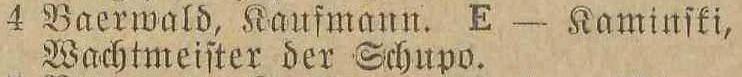 4 Baerwald, Kaufmann. E — Kaminſki,
Wachtmeiſter der Schupo.